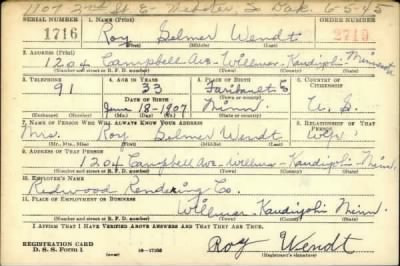 1107 2nd St E- Webster, S Dak. 6-5-45
SERIAL NUMBER 1. NAME (Print) ORDER NUMBER
1716 Roy Gelmer Wendt 2710
(First) (Middle) (Last)
2. ADDRESS (Print)
1204 Campbell Ave- Willmar- Kandiyohi- Minnesota
(Number and street or R. F. D. number) (Town) (County) (State)
3. TELEPHONE 4. AGE IN YEARS 5. PLACE OF BIRTH 6. COUNTRY OF CITIZENSHIP
91 33 Faribault
DATE OF BIRTH (Town or county)
June 18-1907 Minn. U. S.
(Exchange) (Number) (Mo.) (Day) (Yr.) (State or country)
7. NAME OF PERSON WHO WILL ALWAYS KNOW YOUR ADDRESS 8. RELATIONSHIP OF THAT PERSON
Mrs. Roy Gelmer Wendt Wife
(Mr., Mrs., Miss) (First) (Middle) (Last)
9. ADDRESS OF THAT PERSON
1204 Campbell Ave. Willmar- Kandiyohi- Minn.
(Number and street or R. F. D. number) (Town) (County) (State)
10. EMPLOYER'S NAME
Redwood Rendering Co.
11. PLACE OF EMPLOYMENT OR BUSINESS
Willmar- Kandiyohi Minn.
(Number and street or R. F. D. number) (Town) (County) (State)
I AFFIRM THAT I HAVE VERIFIED ABOVE ANSWERS AND THAT THEY ARE TRUE.
REGISTRATION CARD
D. S. S. Form 1 Roy Wendt
(Registrant's signature)